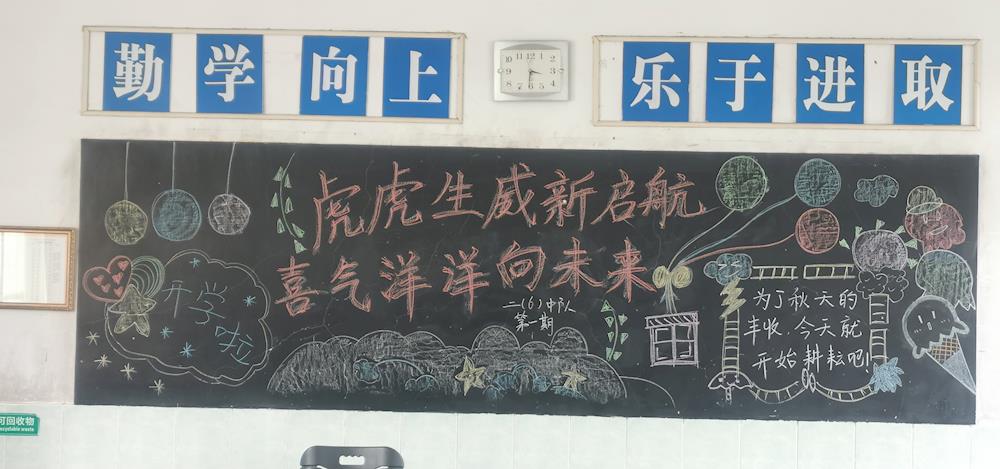 勤学向上
乐于进取
虎虎生威新启航
喜气洋洋向未来
二(6)中队
第一期
开学啦
为了秋天的
丰收,今天就
开始耕耘吧!
可回收物
Recyclable waste